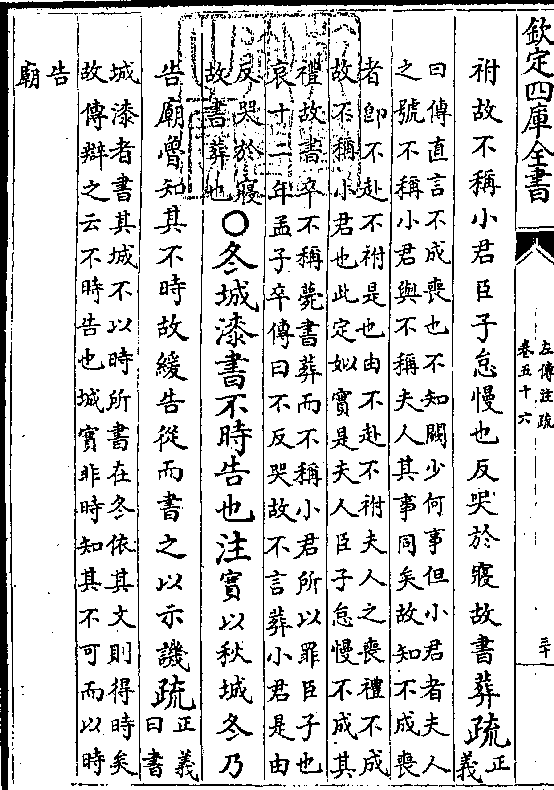 欽定四庫全書
左傳注疏
卷五十六
三十
祔故不稱小君臣子怠慢也反哭於寢故書葬疏正義
曰傳直言不成喪也不知闕少何事但小君者夫人
之號不稱小君與不稱夫人其事同矣故知不成喪
者即不赴不祔是也由不赴不祔夫人之喪禮不成
故不稱小君也此定姒實是夫人臣子怠慢不成其
禮故書卒不稱薨書葬而不稱小君所以罪臣子也
哀十二年孟子卒傳曰不反哭故不言葬小君是由
反哭於寢
故書葬也
○冬城漆書不時告也注實以秋城冬乃
告廟魯知其不時故緩告從而書之以示譏疏正義
曰書
城漆者書其城不以時所書在冬依其文則得時矣
故傳辯之云不時告也城實非時知其不可而以時
告
廟